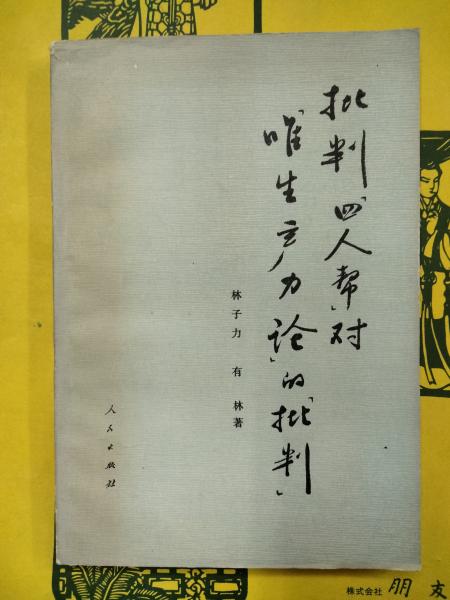 批判“四人帮”对
“唯生产力论”的“批判”
林子力 有林著
人民出版社
株式会社 朋友